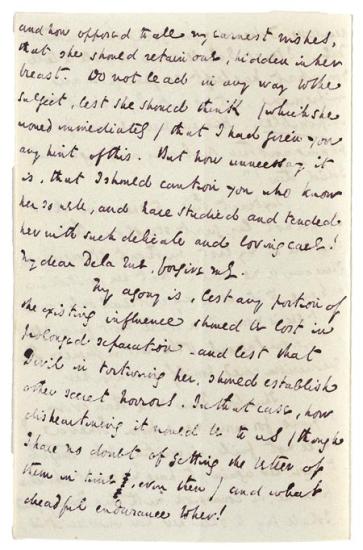 and how opposed to all my earnest wishes,
that she should retain one, hidden in her
breast. Do not lead in any way to the
subject, lest she should think (which she
would immediately) that I had given you
any hint of this. But how unnecessary it
is, that I should caution you who know
her so well, and have studied and tended
her with such delicate and loving care!
My dear De la Rue, forgive me.
My agony is, lest any portion of
the existing influence should be lost in
prolonged separation and lest that
Devil in torturing her, should establish
other secret horrors. In that case, how
disheartening it would be to us (though
I have no doubt of getting the better of
them in time, even then) and what
dreadful endurance to her!